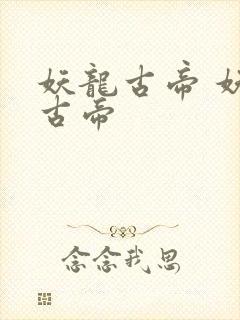 妖龍古帝 妖
古帝
念念我思